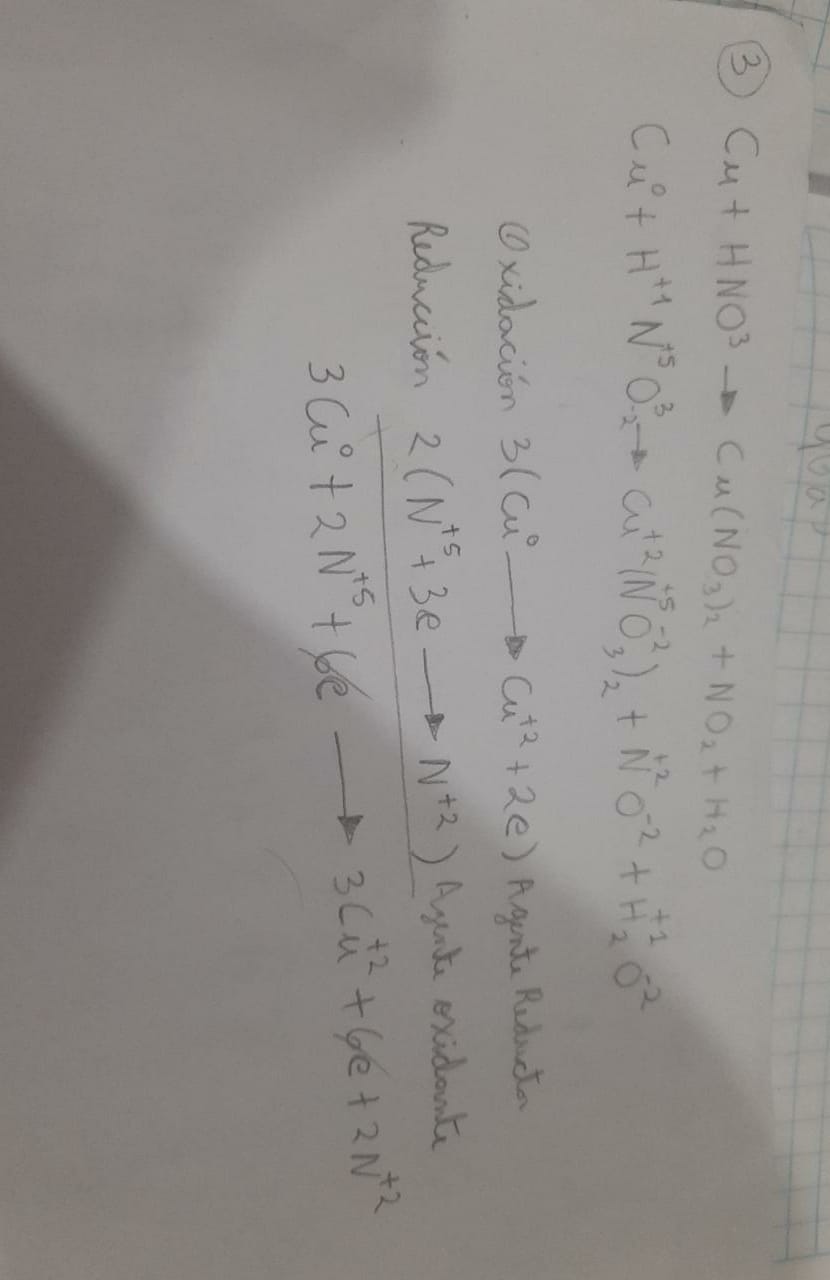 ③ Cu + HNO³ → Cu(NO₃)₂ + NO₂ + H₂O
Cu⁰ + H⁺¹N⁺⁵O₋₂³ → Cu⁺²(N⁺⁵O₃⁻²)₂ + N⁺²O⁻² + H₂⁺¹O⁻²
Oxidación 3(Cu⁰ → Cu⁺² + 2e) Agente Reductor
Reducción 2(N⁺⁵ + 3e → N⁺²) Agente oxidante
3Cu⁰ + 2N⁺⁵ + 6e → 3Cu⁺² + 6e + 2N⁺²